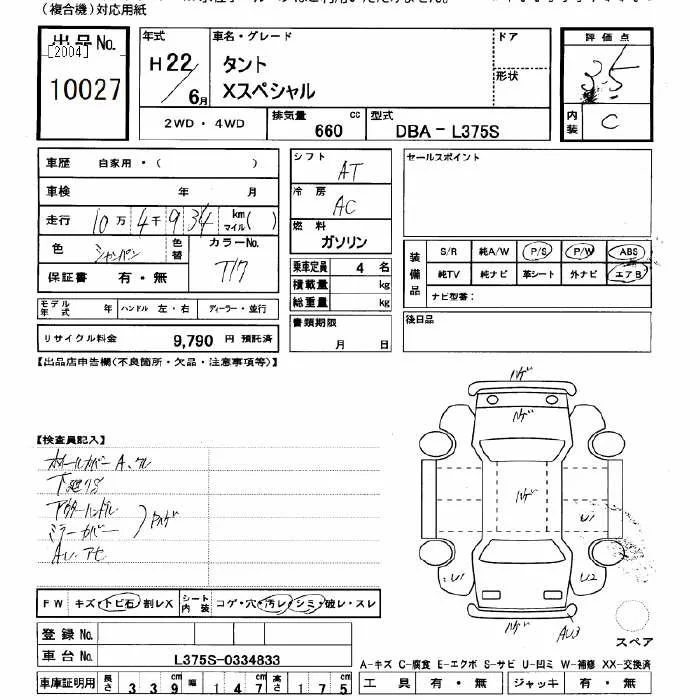 (複合機)対応用紙
出品No.
[2004]
10027
年式
H22/6月
車名・グレード
タント
Xスペシャル
ドア
形状
評価点
3.5
内装
C
2WD・4WD
排気量
660
cc
型式
DBA-L375S
車歴
自家用・( )
車検
年 月
走行
10万4千934
km
マイル( )
色
シャンパン
色替
カラーNo.
T17
保証書
有・無
シフト
AT
冷房
AC
燃料
ガソリン
乗車定員
4 名
積載量
kg
総重量
kg
セールスポイント
装備品
S/R 純A/W P/S P/W ABS
純TV 純ナビ 革シート 外ナビ エアB
ナビ型番:
モデル年式
年
ハンドル 左・右
ディーラー・並行
リサイクル料金
9,790 円 預託済
書類期限
月 日
後日品
【出品店申告欄(不良箇所・欠品・注意事項等)】
【検査員記入】
ホイールカバーA、クル
アウターハンドル
ミラーカバー
ハゲ
ハゲ
ハゲ
ハゲ
U1
U1
U2
ハゲ
AU3
スペア
FW
キズ・トビ石・割レX
シート内装
コゲ・穴・汚レ・シミ・破レ・スレ
登録No.
車台No.
L375S-0334833
A-キズ C-腐食 E-エクボ S-サビ U-凹ミ W-補修 XX-交換済
車庫証明用
長さ
339
cm
幅
147
cm
高さ
175
cm
工具
有・無
ジャッキ
有・無